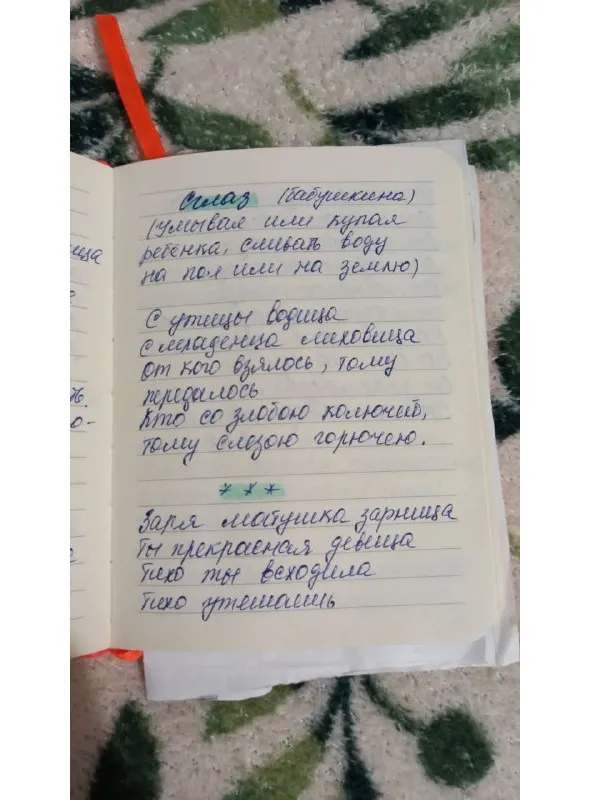 Сглаз (бабушкина)
(умывая или купая
ребёнка, сливать воду
на пол или на землю)
С утицы водица
С младенца лиховица
От кого взялось, тому
передалось
Кто со злобою колючей,
тому слезою горючею.
* * *
Заря матушка зарница
Ты прекрасная девица
Тихо ты всходила
Тихо утешаешь
ица
о-